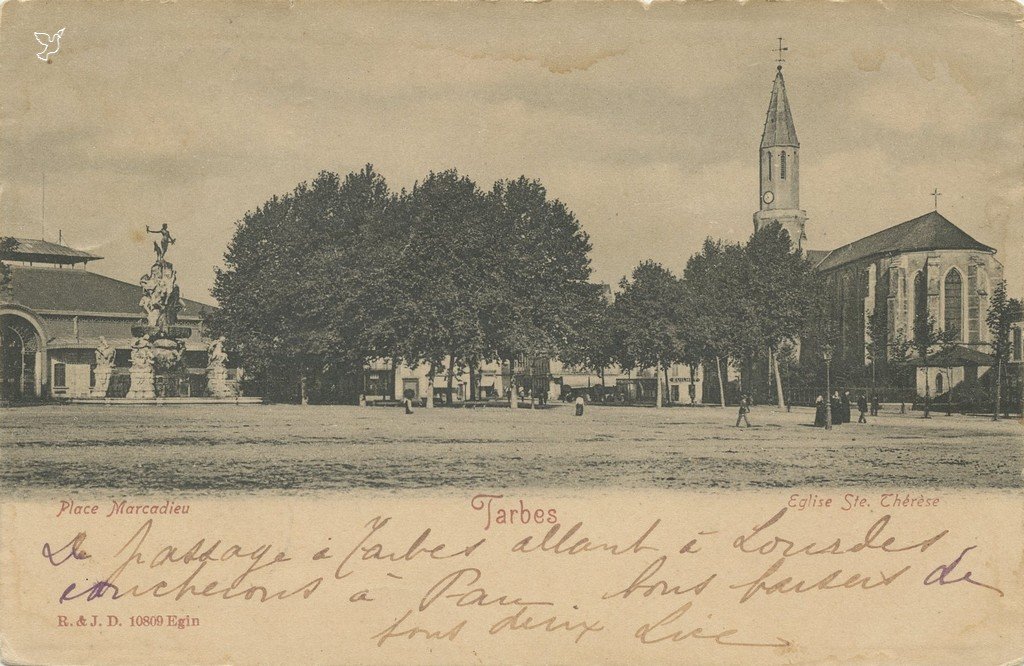 Place Marcadieu
Tarbes
Eglise Ste. Thérèse
De passage à Tarbes allant à Lourdes
coucherons à Pau bons baisers de
tous deux
R. & J. D. 10809 Egin